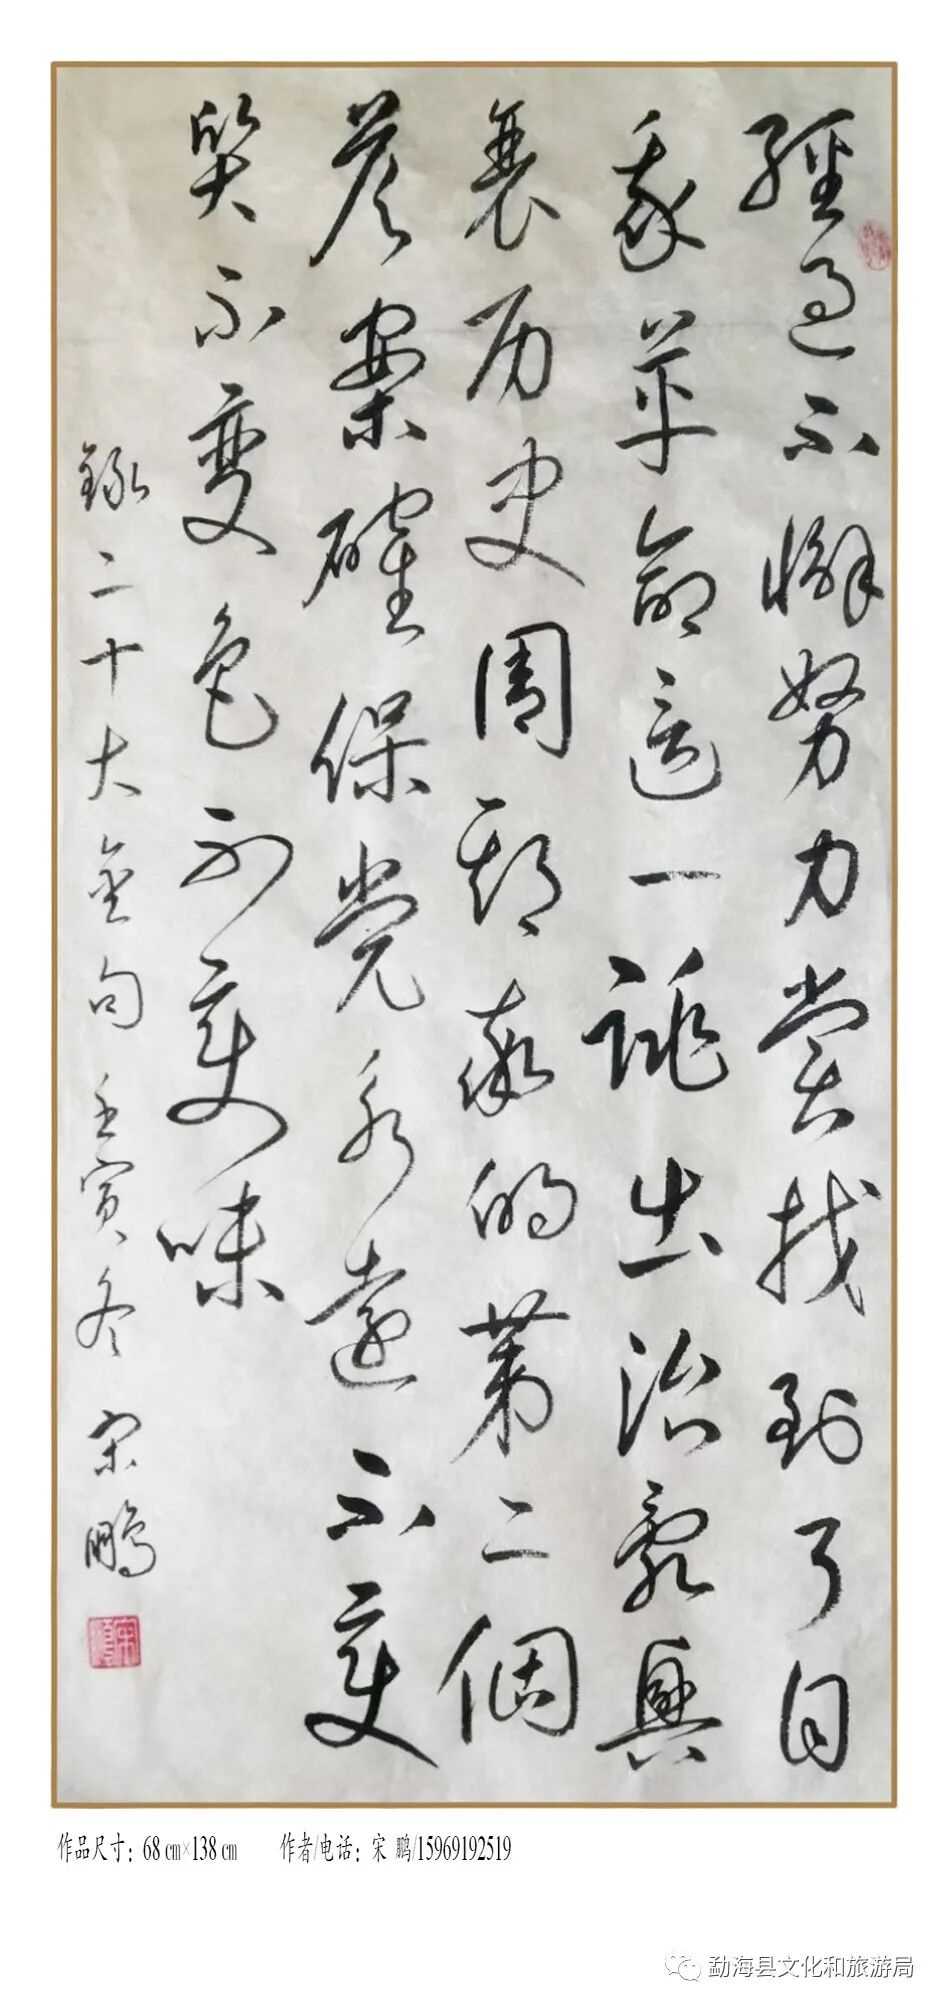 經過不懈努力黨找到了自
我革命這一跳出治亂興
衰历史周期率的第二個
答案確保党永遠不变
質不变色不变味
録二十大金句壬寅冬宋鵬
作品尺寸：68 cm×138 cm 作者/电话：宋 鹏/15969192519
勐海县文化和旅游局